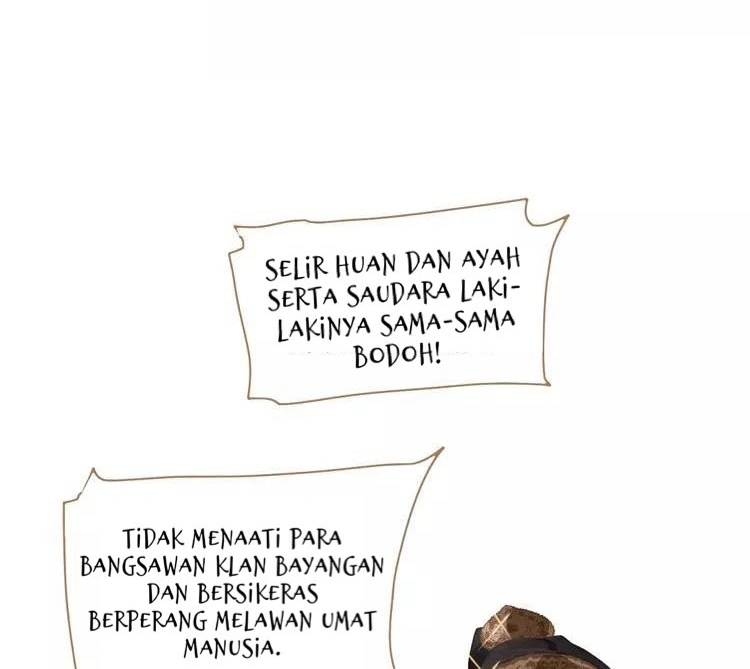 SELIR HUAN DAN AYAH
SERTA SAUDARA LAKI-
LAKINYA SAMA-SAMA
BODOH!
TIDAK MENAATI PARA
BANGSAWAN KLAN BAYANGAN
DAN BERSIKERAS
BERPERANG MELAWAN UMAT
MANUSIA.